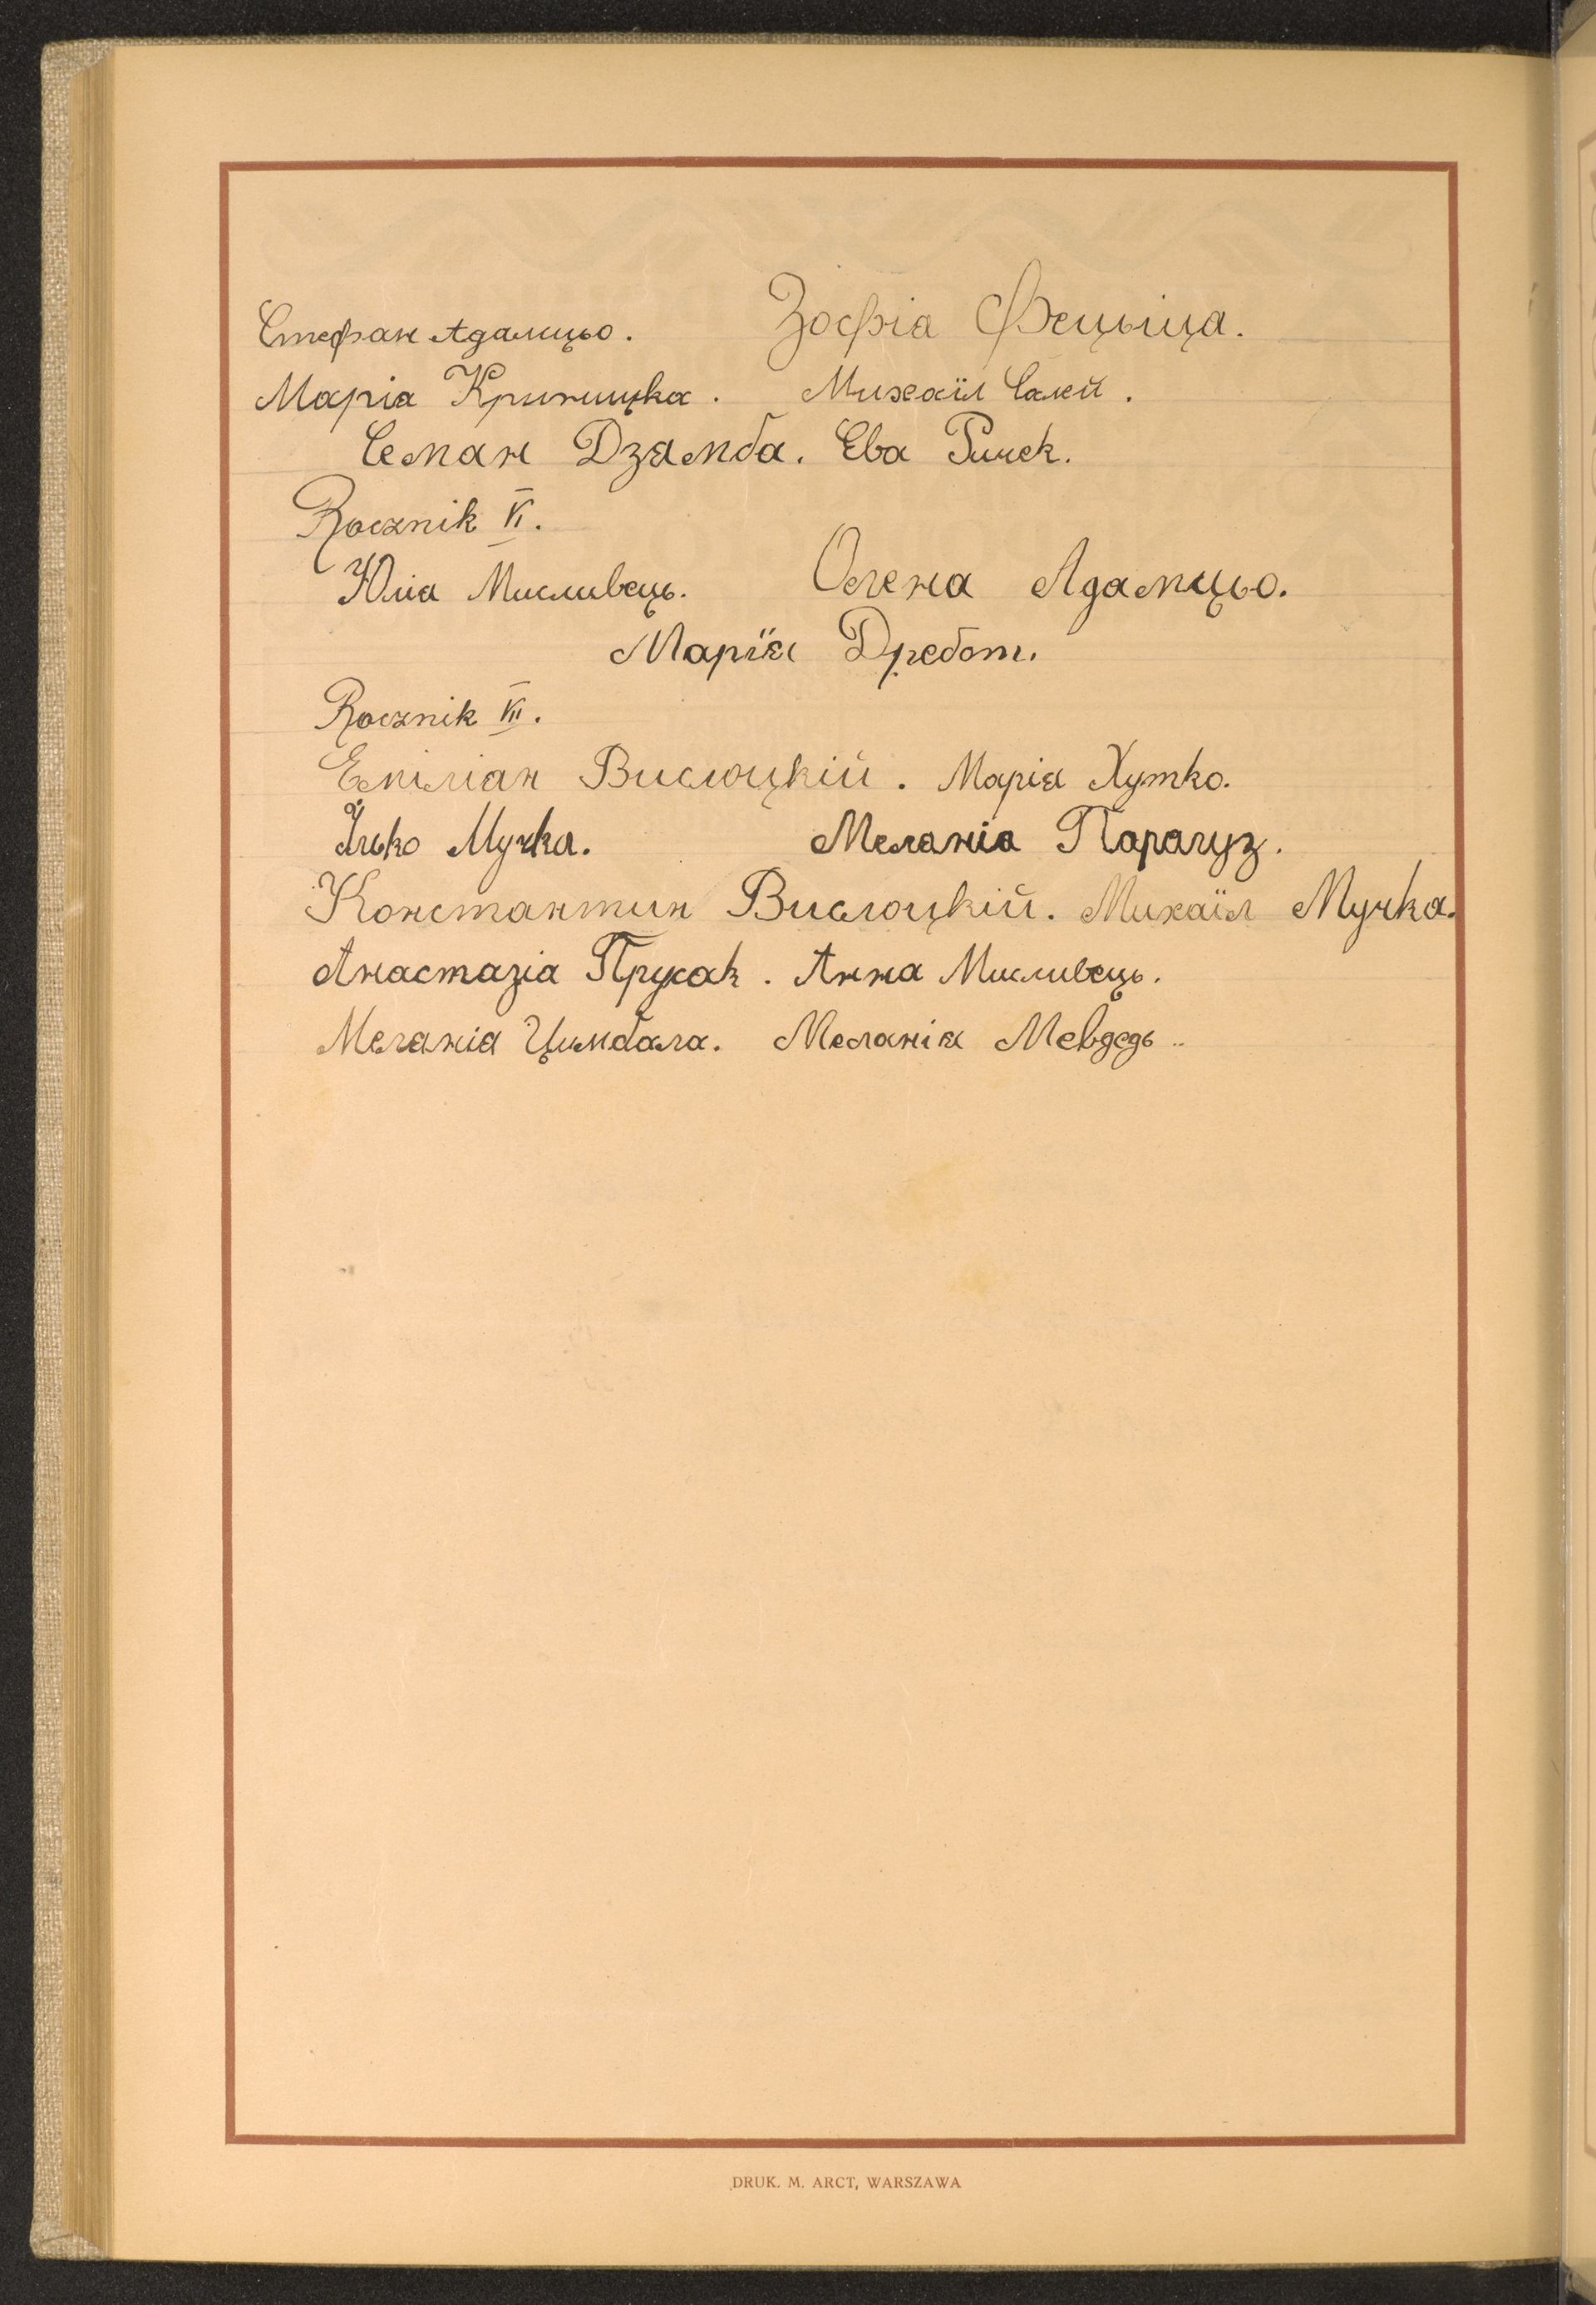 Стефан Адамцьо. Зофіа Фецьица.
Маріа Криницка. Михаіл Салей.
Семан Дзямба. Ева Ричек.
Rocznik VI.
Юліа Мисливець. Олена Адамцьо.
Маріїя Дребот.
Rocznik VII.
Еміліан Вислоцкій. Марія Хутко.
Ілько Мучка. Меланіа Парагуз.
Константин Вислоцкій. Михаіл Мучка.
Анастазіа Прусак. Анна Мисливець.
Меланіа Цимбала. Меланія Мевдедь..
DRUK. M. ARCT, WARSZAWA